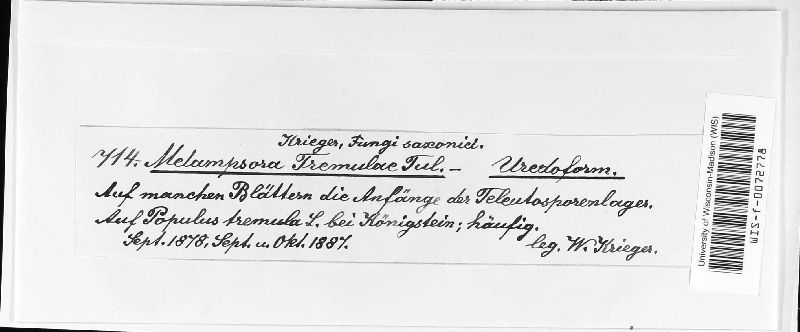 Krieger, Fungi saxonici.
714. Melampsora Tremulae Tul. — Uredoform.
Auf manchen Blättern die Anfänge der Teleutosporenlager.
Auf Populus tremula L. bei Königstein; häufig.
Sept. 1878, Sept. u. Okt. 1887.
leg. W. Krieger.
University of Wisconsin-Madison (WIS)
WIS-f-0072778